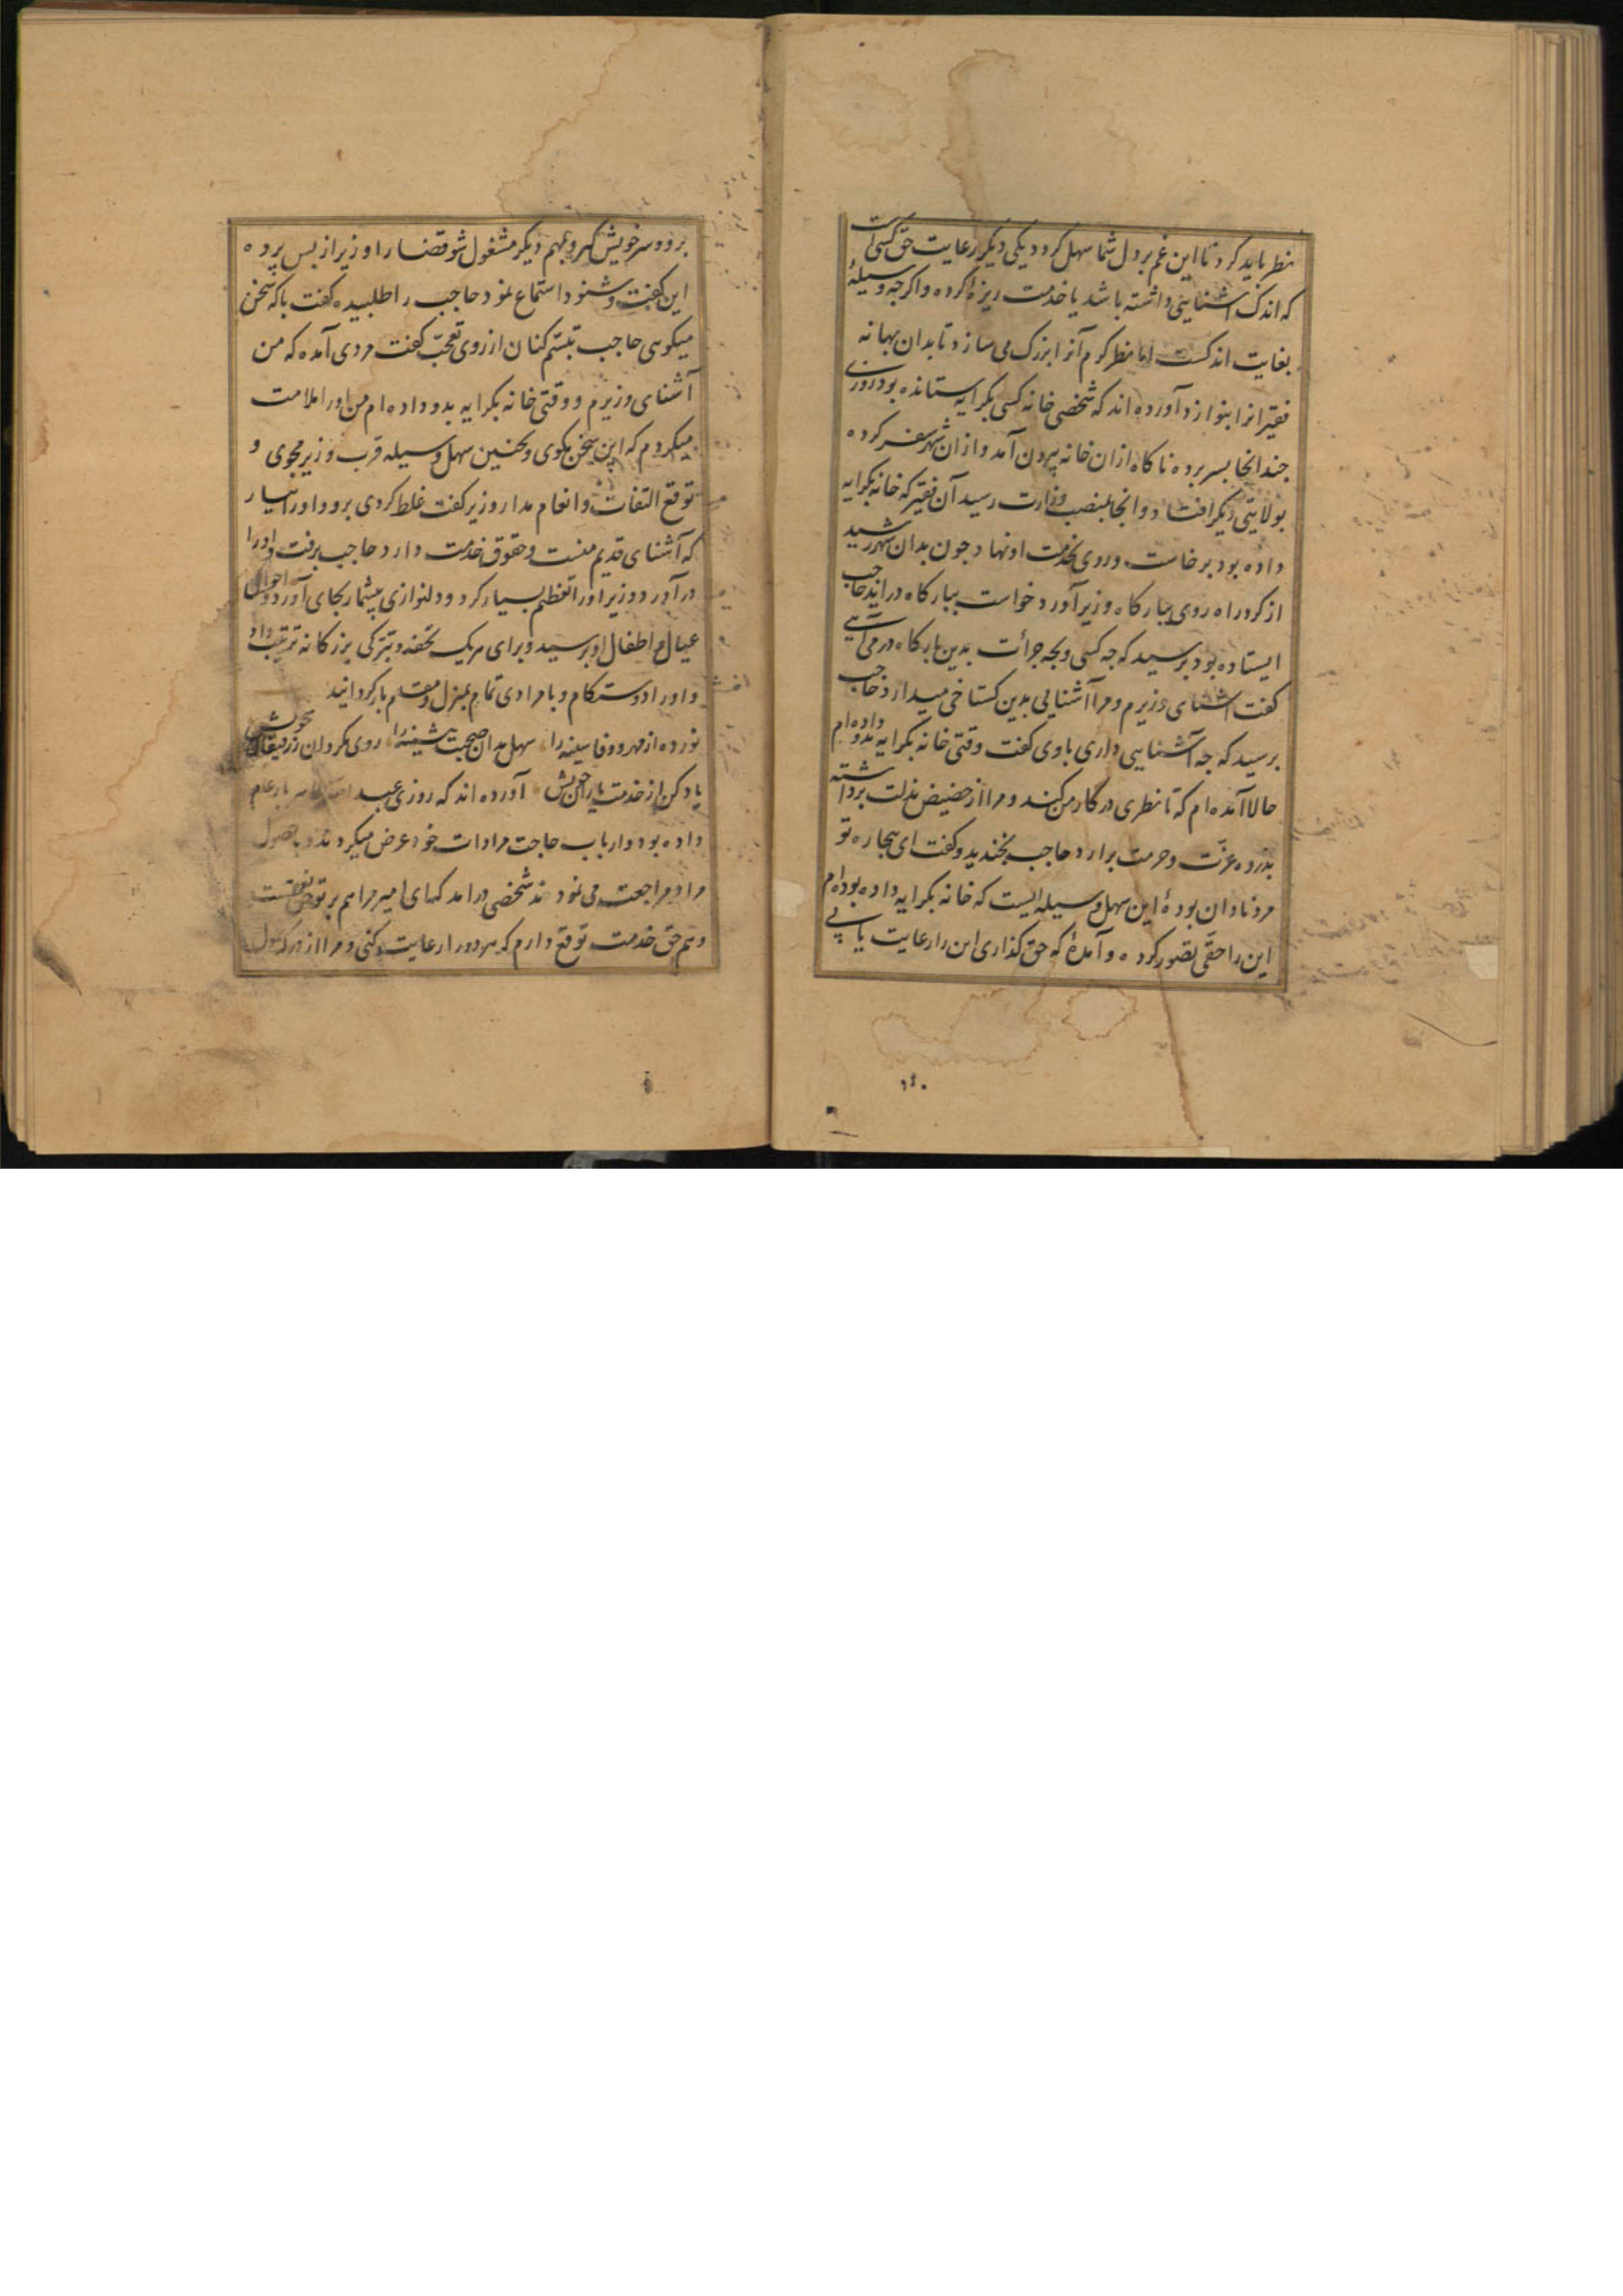 نظر باید کرد تا این غم بر دل شما سهل کردد یکی دیکر رعایت حق کسی است
که اندک آشنایی داشته باشد یا خدمت ریزهٔ کرده و اکرچه وسیلهٔ
بغایت اندکست اما نظر کرم آنرا بزرک می سازد تا بدان بهانه
فقیرانرا بنوازد آورده اند که شخصی خانه کسی بکرایه ستانده بود روزی
چند انجا بسر برده ناکاه ازان خانه بیرون آمد و ازان شهر سفر کرده
بولایتی دیکر افتاد و انجا بمنصب وزارت رسید آن فقیر که خانه بکرایه
داده بود برخاست و روی بخدمت او نهاد جون بدان شهر رسید
از کرد راه روی ببارکاه وزیر آورد خواست ببارکاه دراید حاجب
ایستاده بود برسید که جه کسی و بجه جرأت بدین بارکاه درمی آیی
کفت آشنای وزیرم و مرا آشنایی بدین کستاخی میدارد حاجب
برسید که جه آشنایی داری باوی کفت وقتی خانه بکرایه بدو داده ام
حالا آمده ام که تا نظری در کار من کند و مرا از حضیض مذلت برداشته
بذروه عزّت و حرمت برارد حاجب بخندید و کفت ای بیجاره تو
مرد نادان بودهٔ این سهل وسیله ایست که خانه بکرایه داده بوده ام
این را حقی تصور کرده و آمدهٔ که حق کذاری این را رعایت یابی
برو و سر خویش کیر و بمهم دیکر مشغول شو قضا را وزیر از بس برده
این کفت و شنود استماع نمود حاجب را طلبیده کفت با که سخن
میکویی حاجب تبسّم کنان از روی تعجّب کفت مردی آمده که من
آشنای وزیرم و وقتی خانه بکرایه بدو داده ام من او را ملامت
میکردم که این سخن مکوی و بجنین سهل وسیله قرب وزیر مجوی و
توقع التفات و انعام مدار وزیر کفت غلط کردی برو و او را بیار
که آشنای قدیم منست و حقوق خدمت دارد حاجب برفت و او را
درآورد وزیر او را تعظیم بسیار کرد و دلنوازی بیشمار بجای آورد و احوال
عیال و اطفال او برسید و برای هریک تحفه و تبرّکی بزرکانه ترتیب داد
و او را دوستکام و با مرادی تمام بمنزل و مقام باز کردانید
نور ده از مهر و وفا سینه را سهل مدان صحبت دیرینه را روی مکردان ز رفیقان خویش
یاد کن از خدمت یاران خویش آورده اند که روزی عبد الله طاهر بار عام
داده بود و ارباب حاجت مرادات خود عرض میکردند و بحصول
مراد مراجعت می نمودند شخصی درامد که ای امیر مرا هم بر تو حق نعمتست
و هم حق خدمت توقع دارم که هر دو را رعایت کنی و مرا از